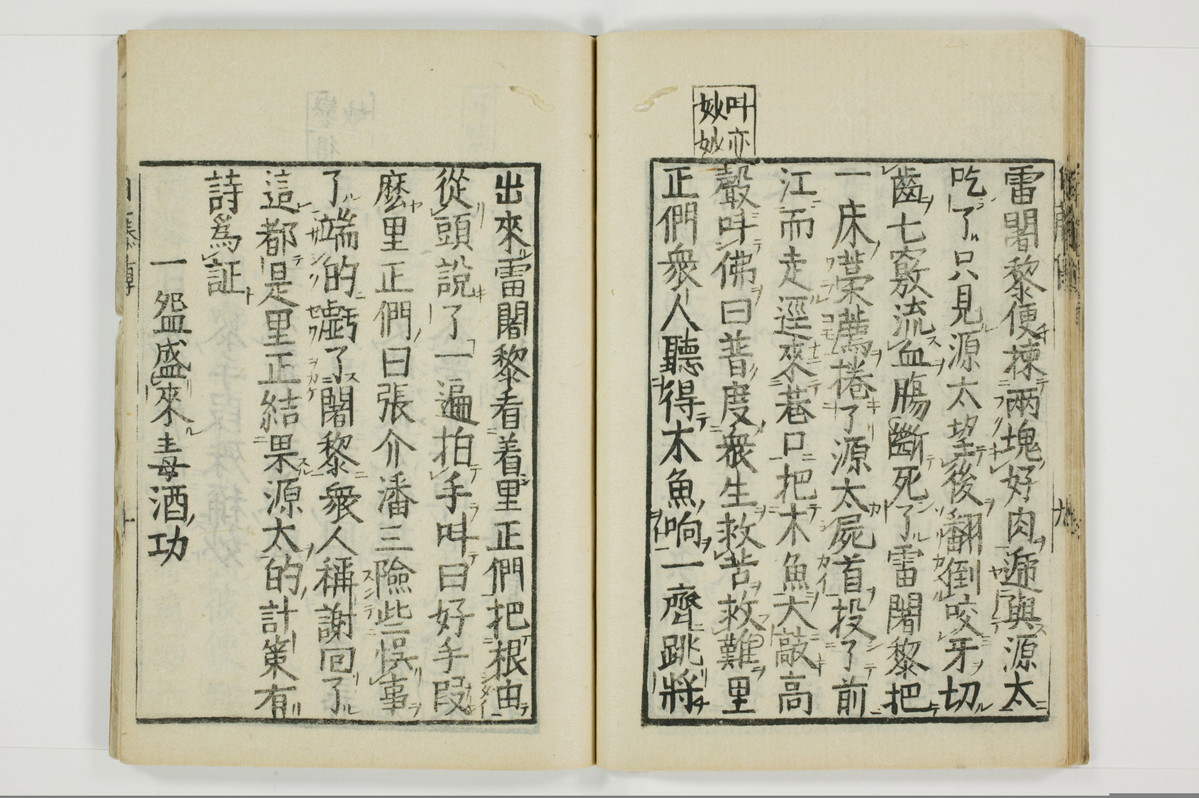 叫亦
妙妙
雷闍黎便揀兩塊好肉遞與源太
吃了只見源太望後翻倒咬牙切
齒七竅流血膓斷死了雷闍黎把
一床藁薦捲了源太屍首投了前
江而走逕來巷口把木魚大敲高
聲叫佛曰普度衆生救苦救難里
正們衆人聽得木魚响一齊跳將
出來雷闍黎看着里正們把根由
從頭說了一遍拍手叫曰好手段
麽里正們曰張介潘三險些悞事
了端的虧了闍黎衆人稱謝回了
這都是里正結果源太的計策有
詩爲証
一盌盛來毒酒功